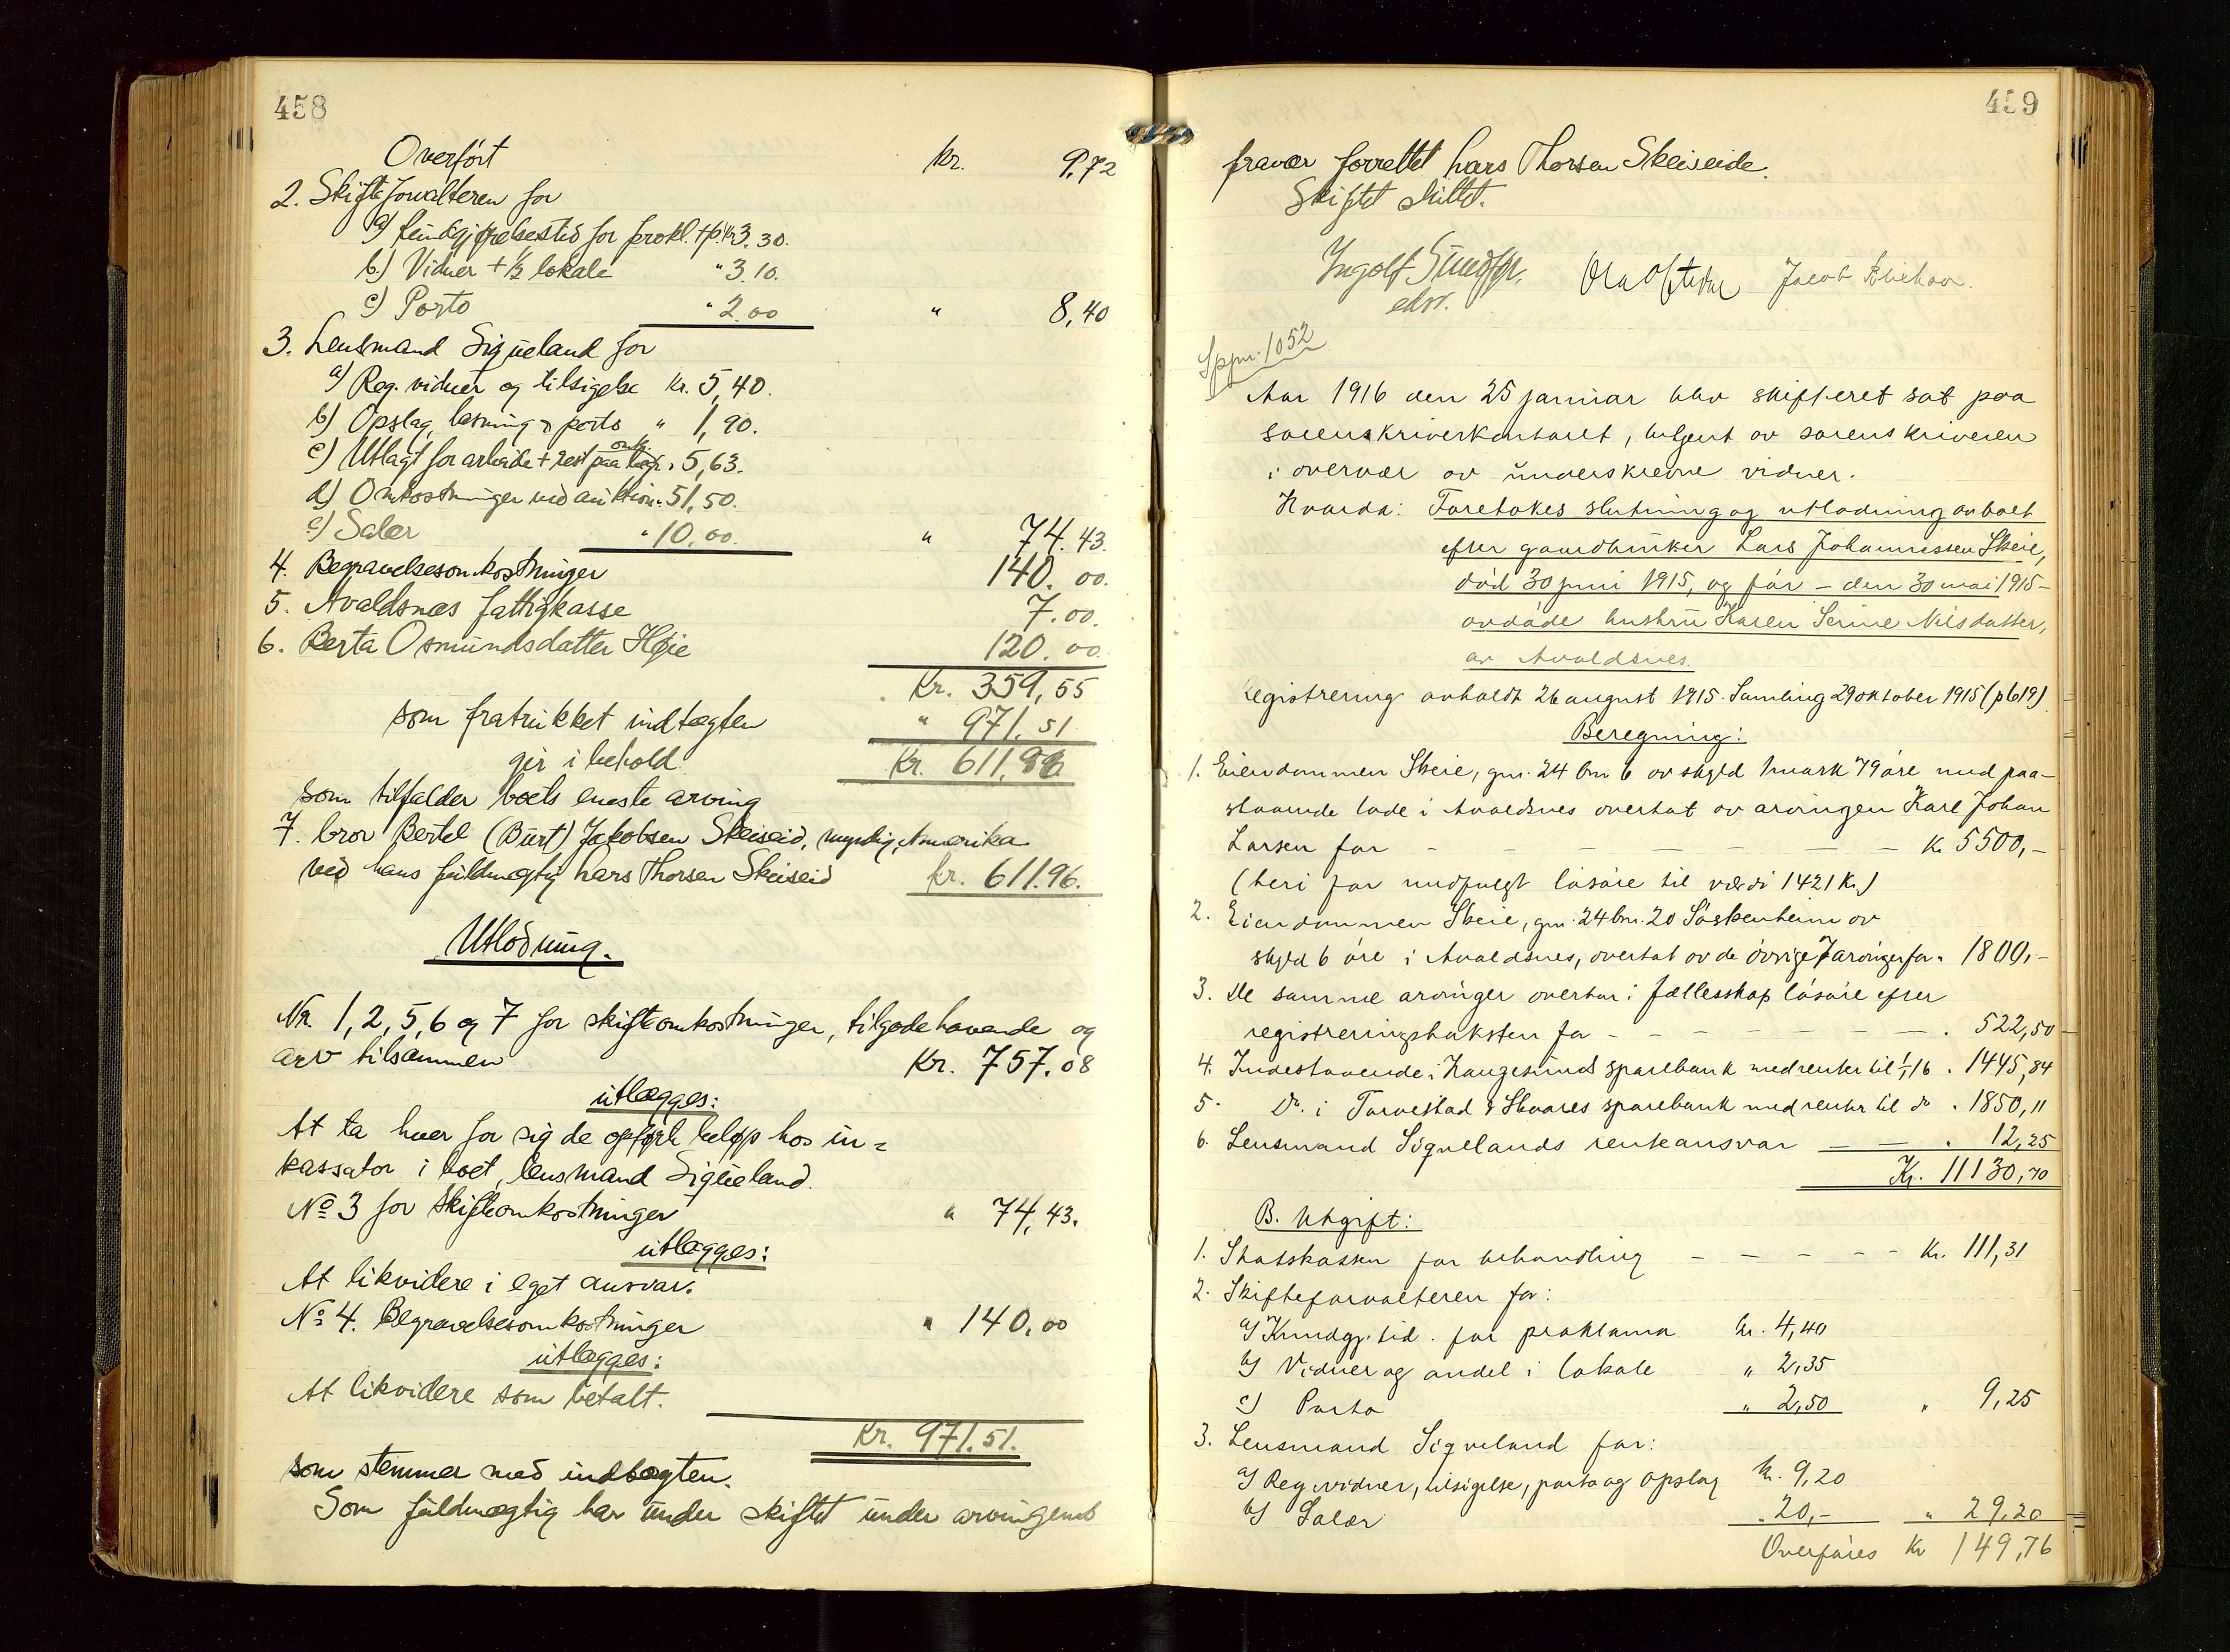 458
Overført Kr. 9.72
2. Skifteforvalteren for
a) kundgjørelsestid for prokl. + p. Kr 3.30.
b.) Vidner + ½ lokale " 3.10.
c) Porto " 2.00 " 8,40
3. Lensmand Sigueland for
a) Reg. vidner og tilsigelse Kr. 5,40.
b) Opslag, læsning & porto " 1,90.
c) Utlagt for arbeide + rest paa " 5,63.
d) Omkostninger ved auktion " 51,50.
e) Salær " 10.00. " 74.43.
4. Begravelsesomkostninger 140.00.
5. Avaldsnæs fattigkasse 7.00.
6. Berta Osmundsdatter Høie 120.00.
Kr. 359,55
som fratrukket indtægten " 971.51
gir i behold Kr. 611,96
som tilfalder boets eneste arving
7. bror Bertel (Burt) Jakobsen Skeiseid, myndig, Amerika
ved hans fuldmægtig Lars Thorsen Skeiseid kr. 611.96.
Utlodning.
Nr. 1, 2, 5, 6 og 7 for skifteomkostninger, tilgodehavende og
arv tilsammen Kr. 757.08
utlægges:
At ta hver for sig de opførte beløp hos in=
kassator i boet, lensmand Sigueland.
No 3 for Skifteomkostninger " 74,43.
utlægges:
At likvidere i eget ansvar.
No 4. Begravelsesomkostninger " 140.00
utlægges:
At likvidere som betalt.
Kr. 971.51.
som stemmer med indtægten.
Som fuldmægtig har under skiftet under arvingens
459
fravær forrettet Lars Thorsen Skeiseide.
Skiftet sluttet.
Ingolf Sundfør,
edsv.
Ola Oftedal
Jacob
1052
Aar 1916 den 25 januar blev skifteret sat paa
sorenskriverkontoret, betjent av sorenskriveren
i overvær av underskrevne vidner.
Hvorda: Foretokes slutning og utlodning av boet
efter gaardbruker Lars Johannessen Skeie,
død 30 juni 1915, og før – den 30 mai 1915 –
avdøde hustru Karen Serine Nilsdatter,
av Avaldsnes.
Registrering avholdt 26 august 1915. Samling 29 oktober 1915 (p 619).
Beregning:
1. Eiendommen Skeie, gnr. 24 bnr 6 av skyld 1 mark 79 øre med paa-
staaende lade i Avaldsnes overtat av arvingen Karl Johan
Larsen for – – – – – – Kr 5500,–
(heri for medfulgt løsøre til værdi 1421 Kr.)
2. Eiendommen Skeie, gnr. 24 bnr. 20 Søskenheim av
skyld 6 øre i Avaldsnes, overtat av de øvrige 7 arvinger for " 1800,–
3. De samme arvinger overtar i fællesskap løsøre efter
registreringstaksten for – – – – – – " 522,50
4. Indestaaende i Haugesunds sparebank med renter til 1/1 16 " 1445,84
5. Do. i Torvestad & Skaares sparebank med renter til do " 1850,11
6. Lensmand Siquelands renteansvar – – " 12,25
Kr. 11130,70
B. Utgift:
1. Statskassen for behandling – – – – – Kr. 111,31
2. Skifteforvalteren for:
a) Kundgj. tid. for proklama kr. 4,40
b) Vidner og andel i lokale " 2,35
c) Porto " 2,50 " 9,25
3. Lensmand Siqveland for:
a) Reg. vidner, tilsigelse, porto og opslag kr. 9,20
b) Salær " 20,– " 29,20
Overføres Kr 149,76